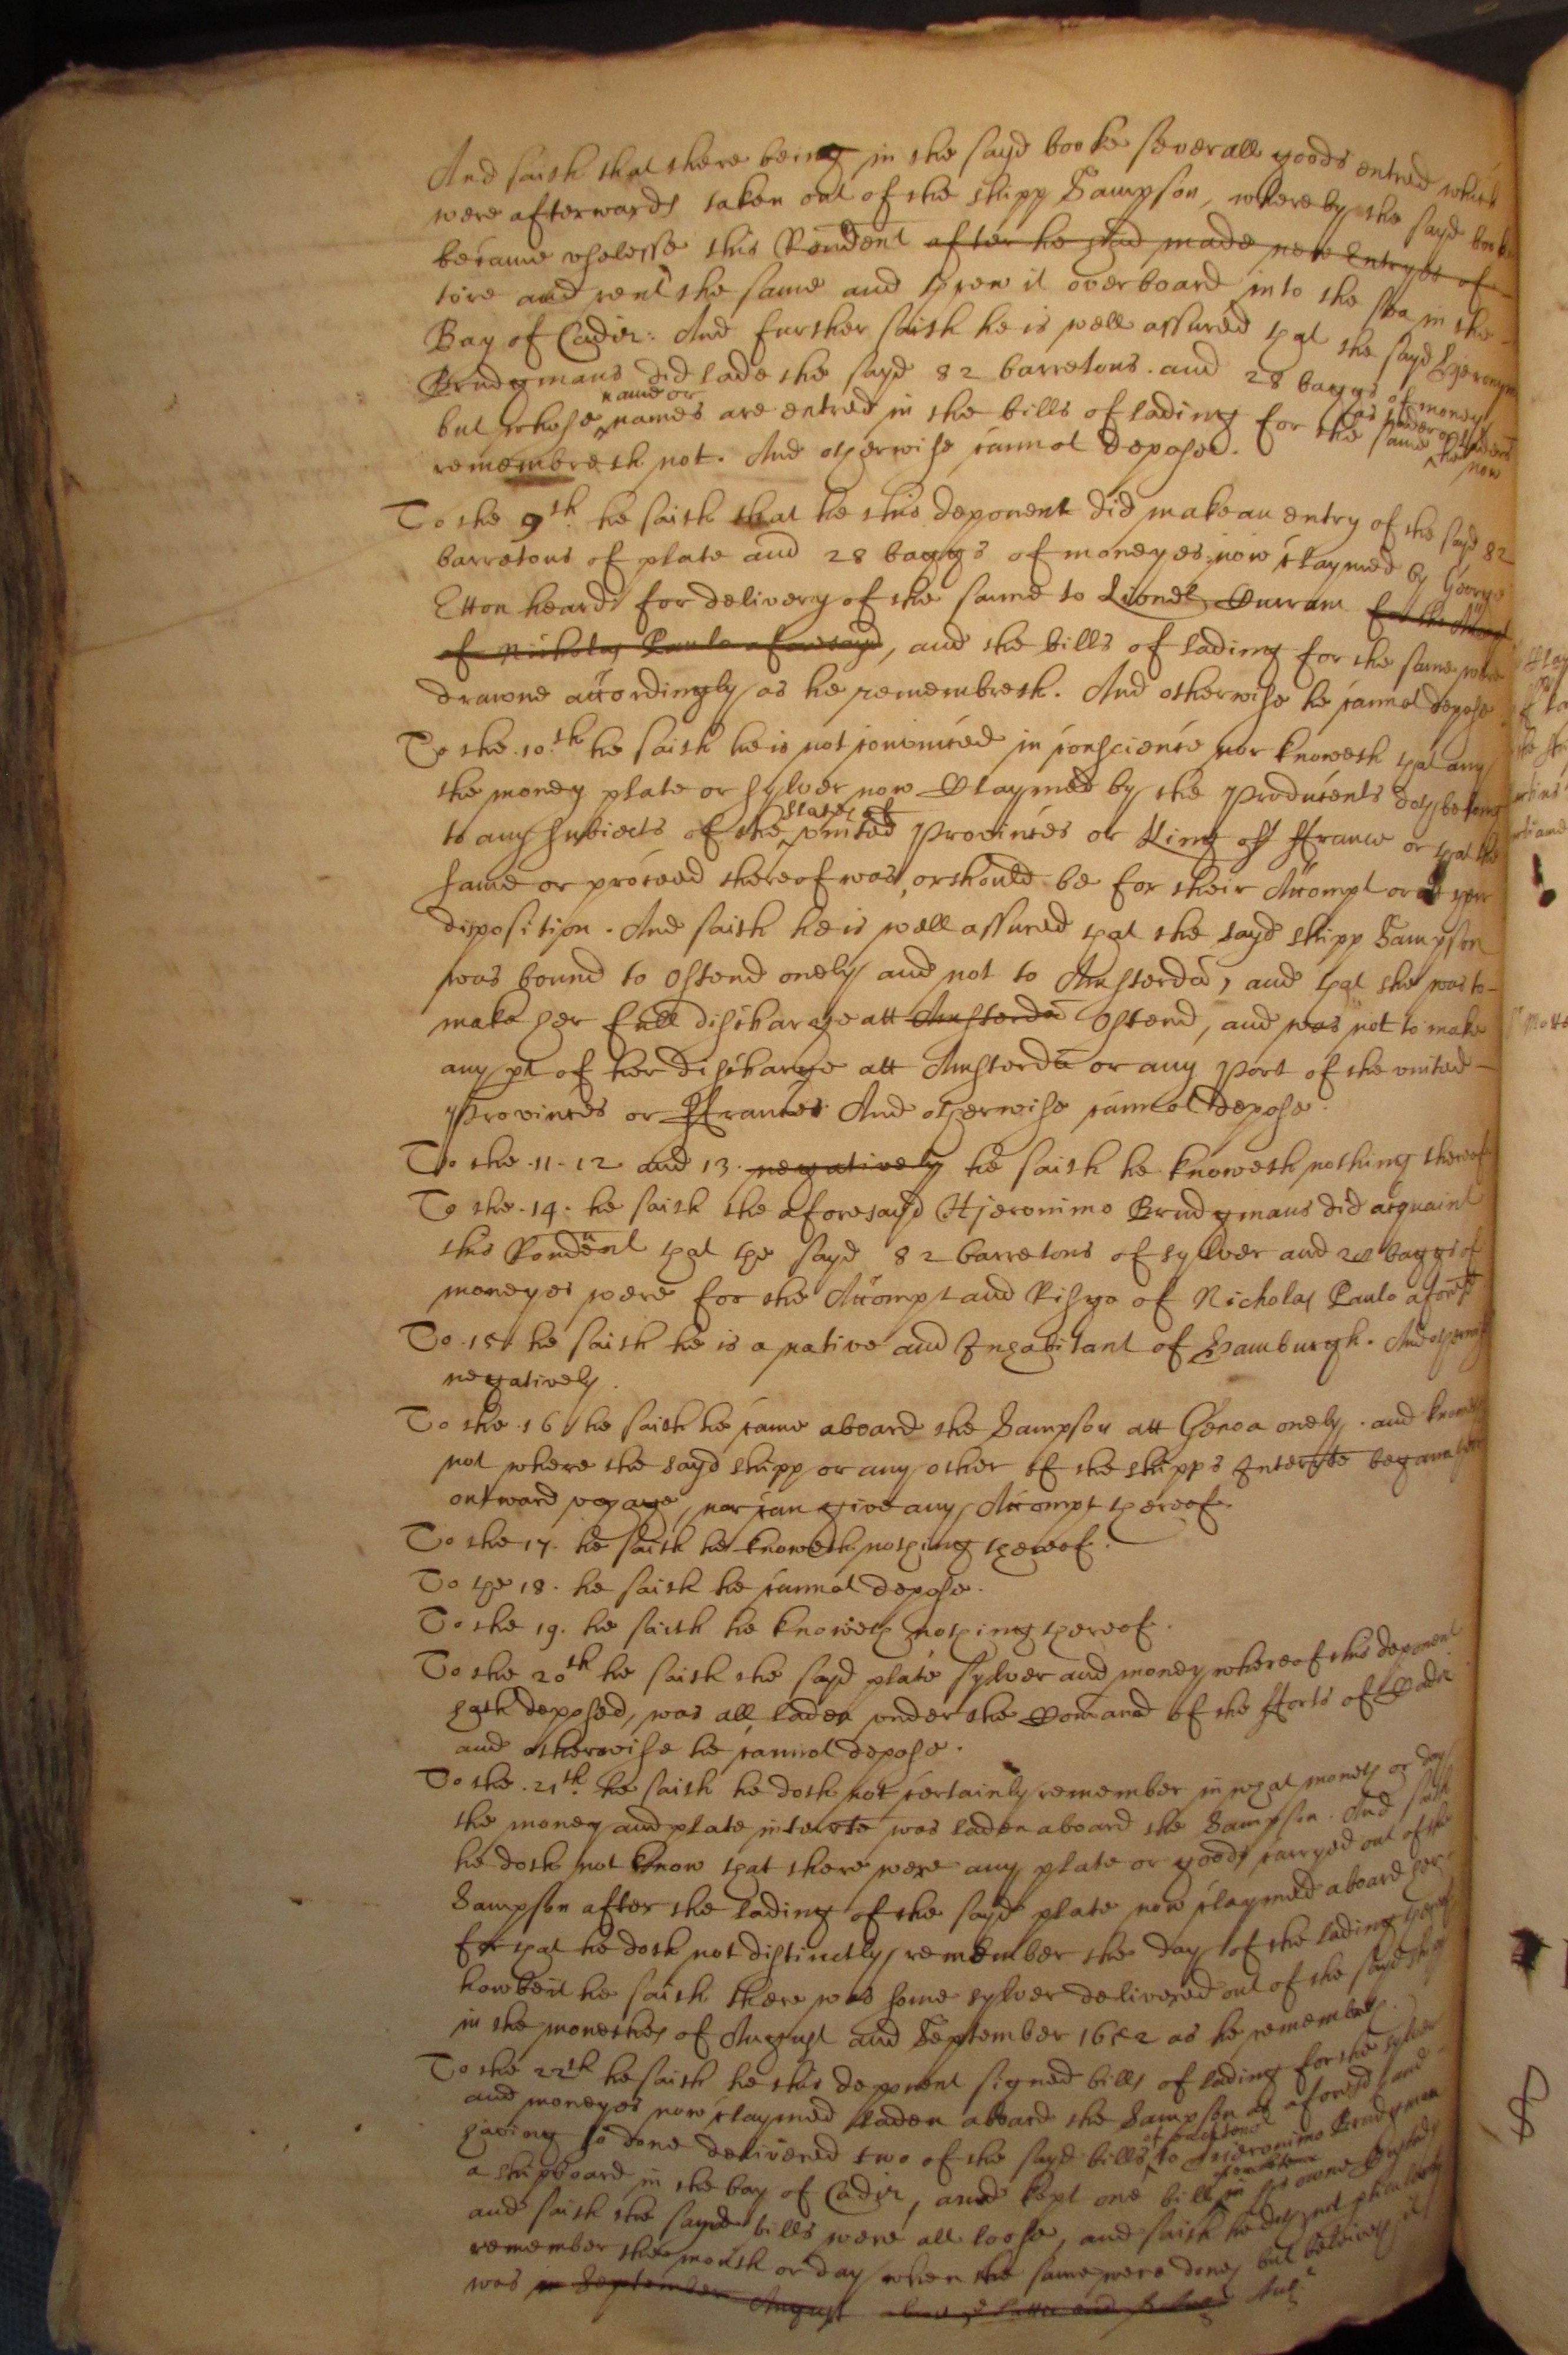 And saith that there being in the sayd booke severall goods entred which
were afterwards taken out of the shipp Sampson, whereby the sayd booke
became uselesse this Rendent after he had made new Entryes of
tore and rent the same and threw it overboard into the sea in the
Bay of Cadiz: And further saith he is well assured that the sayd Hieronymo
Brudgmans did lade the sayd 82 barretons and 28 baggs of moneys
name or
but whose names are entred in the bills of lading for the same as lader or laders he now
remembreth not. And otherwise cannot depose.
To the 9th. he saith that he this deponent did make an entry of the sayd 82
barretons of plate and 28 baggs of moneyes now claymed by George
Etton heard for delivery of the same to Lionel Durram for the Accompt
of Nicholas Paulo aforesayd, and the bills of lading for the same were
drawne accordingly as he remembreth. And otherwise he cannot depose
To the .10.th he saith he is not convinced in conscience nor knoweth that any
the money plate or sylver now Claymed by the Producents doth belong
States of
to any subiects of the united Provinces or King of ffrance or that the
same or proceed thereof was, or should be for their Accompt or at their
disposition. And saith he is well assured that the sayd shipp Sampson
was bound to Ostend onely and not to Amsterdã, and that she was to
make her full discharge att Amsterdã Ostend, and was not to make
any pt of her discharge att Amsterdã or any Port of the united
Provinces or ffrance. And otherwise cannot depose.
To the .11. 12 and 13. negatively he saith he knoweth nothing thereof
To the .14. he saith the aforesayd Hieronimo Brudgmans did acquaint
this Rondent that the sayd 82 barretons of sylver and 28 baggs of
moneyes were for the Accompt and Risgo of Nicholas Paulo aforesd
To .15. he saith he is a native and Inhabitant of Hamburgh. And otherwise
negatively.
To the .16. he saith he came aboard the Sampson att Genoa onely. and knoweth
not where the sayd shipp or any other of the shipps Interrte began their
outward voyage, nor can give any Accompt thereof.
To the 17. he saith he knoweth nothing thereof.
To the 18. he saith he cannot depose.
To the 19. he saith he knoweth nothing thereof.
To the 20th he saith the sayd plate sylver and money whereof this deponent
hath deposed, was all laden under the Comand of the fforts of Cadiz
and otherwise he cannot depose.
To the .21th. he saith he doth not certainly remember in what moneth or day
the money and plate interrte was laden aboard the Sampson. And saith
he doth not know that there were any plate or goods carryed out of the
Sampson after the lading of the sayd plate now claymed aboard her
for that he doth not distinctly remember the day of the lading thereof
howbeit he saith there was some sylver delivered out of the sayd shipp
in the monethes of August and September 1652 as he remembreth.
To the 22th he saith he this deponent signed bills of lading for the sylver
and moneyes now claymed laden aboard the Sampson as aforesd and
having so done delivered two of the sayd bills to Hieronimo Brudgman
a shipboard in the bay of Cadiz, and kept one bill in his owne Custody
and saith the sayd bills were all loose, and saith he doth not
remember the month or day when the same were done but beleiveth it
was in September August